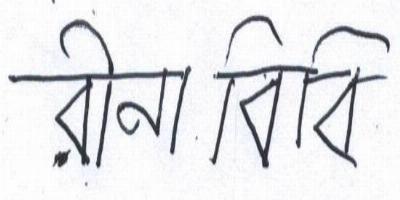 রীনা বিবি